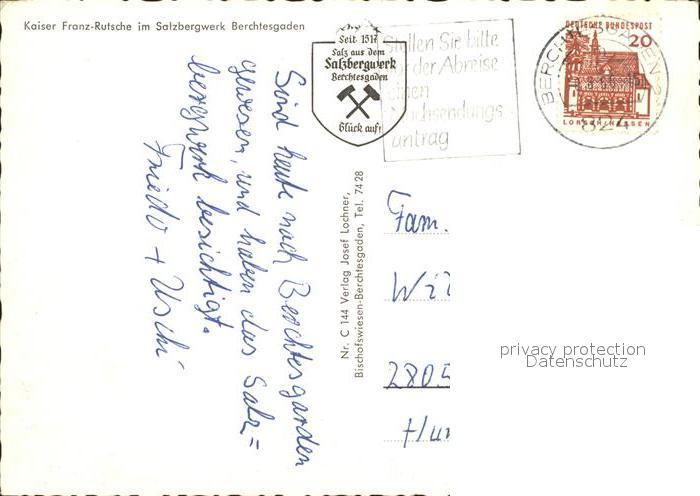 Kaiser Franz-Rutsche im Salzbergwerk Berchtesgaden
Seit 1517
Salz aus dem
Salzbergwerk
Berchtesgaden
Glück auf!
Stellen Sie bitte
vor der Abreise
einen
Nachsendungs-
antrag
DEUTSCHE BUNDESPOST
20
LORSCH/HESSEN
824
Sind heute nach Berchtesgarden
gewesen, und haben das Salz=
bergwerk besichtigt.
Friedo + Uschi
Nr. C 144 Verlag Josef Lochner,
Bischofswiesen-Berchtesgaden, Tel. 7428
Fam.
2805
privacy protection
Datenschutz